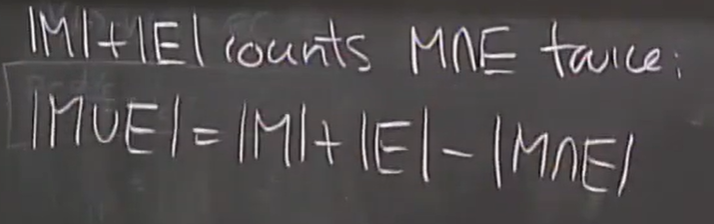 |M|+|E| counts M∩E twice:
|M∪E| = |M| + |E| - |M∩E|